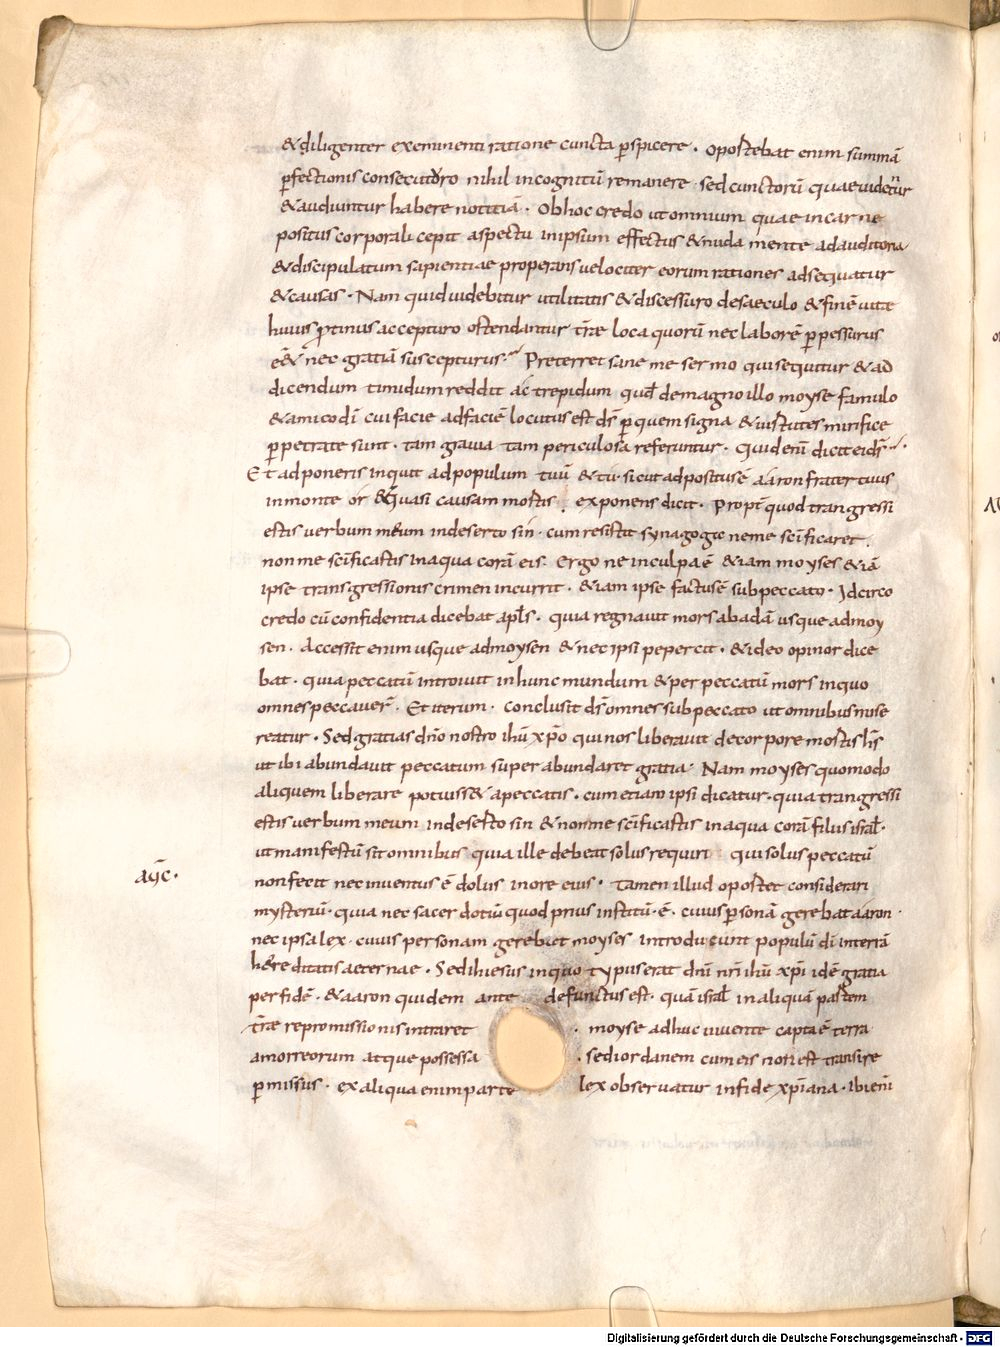 & diligenter exeminenti ratione cuncta ꝑspicere. Oportebat enim summā
ꝑfectionis consecuturo nihil incognitū remanere. sed cunctorū quae videntur
& audiuntur habere notitiā. Ob hoc credo ut omnium quae in carne
positus corporali cepit aspectu in ipsum effectus & nuda mente ad auditoria
& discipulatum sapientiae properans velociter eorum rationes adsequatur
& causas. Nam quid videbitur utilitatis & discessuro de saeculo & finē vitae
huius protinus accepturo ostendantur t̄rae loca quorū nec laborē ꝑpessurus
nec gratiā suscepturus. Preterret sane me sermo qui sequitur & ad
dicendum timidum reddit ac trepidum qđ de magno illo moyse famulo
& amico dī cui facie ad faciē locutus est ds̄ ꝑ quem signa & virtutes mirifice
ꝑpetrate sunt. tam gravia tam periculosa referuntur. Quid enī dicit ei ds̄
Et adponeris inquit ad populum tuū & tu. sicut adpositus ē aaron frater tuus
in monte or & quasi causam mortis exponens dicit. Propt̄ quod trangressi
estis verbum meum in deserto sin. cum resistit synagoga ne me sc̄ificaret.
non me sc̄ificastis in aqua corā eis. Ergo ne in culpa ē &iam moyses &iā
ipse transgressionis crimen incurrit. &iam ipse factus ē sub peccato. Idcirco
credo cū confidentia dicebat apl̄s. quia regnavit mors ab adā usque ad moy
sen. Accessit enim usque ad moysen & nec ipsi pepercit. & ideo opinor dice
bat. quia peccatū introivit in hunc mundum & per peccatū mors in quo
omnes peccaver̄. Et iterum. Conclusit ds̄ omnes sub peccato ut omnibus mise
reatur. Sed gratias dn̄o nostro ih̄u xp̄o qui nos liberavit de corpore mortis h̄s
ut ibi abundavit peccatum superabundaret gratia. Nam moyses quomodo
aliquem liberare potuiss& a peccatis. cum etiam ipsi dicatur. quia trangressi
estis verbum meum in deserto sin & non me sc̄ificastis in aqua corā filiis isrl̄.
ut manifestū sit omnibus quia ille debeat solus requiri qui solus peccatū
aqc̄.
non fecit nec inventus ē dolus in ore eius. Tamen illud oportet considerari
mysteriū. quia nec sacerdotiū quod prius institū. ē. cuius ꝑsonā gerebat aaron.
nec ipsa lex. cuius personam gerebat moyses introducunt populū dī in terrā
hereditatis aeternae. Sed ihesus in quo typus erat dn̄i nr̄i ih̄u xp̄i id ē gratia
per fidē. & aaron quidem ante defunctus est. quā isrl̄ in aliquā partem
t̄rae repromissionis intraret . moyse adhuc vivente capta ē terra
amorreorum atque possessa . sed iordanem cum eis non est transire
ꝑmissus. ex aliqua enim parte lex observatur in fide xp̄iana. ibi enī
Digitalisierung gefördert durch die Deutsche Forschungsgemeinschaft - DFG